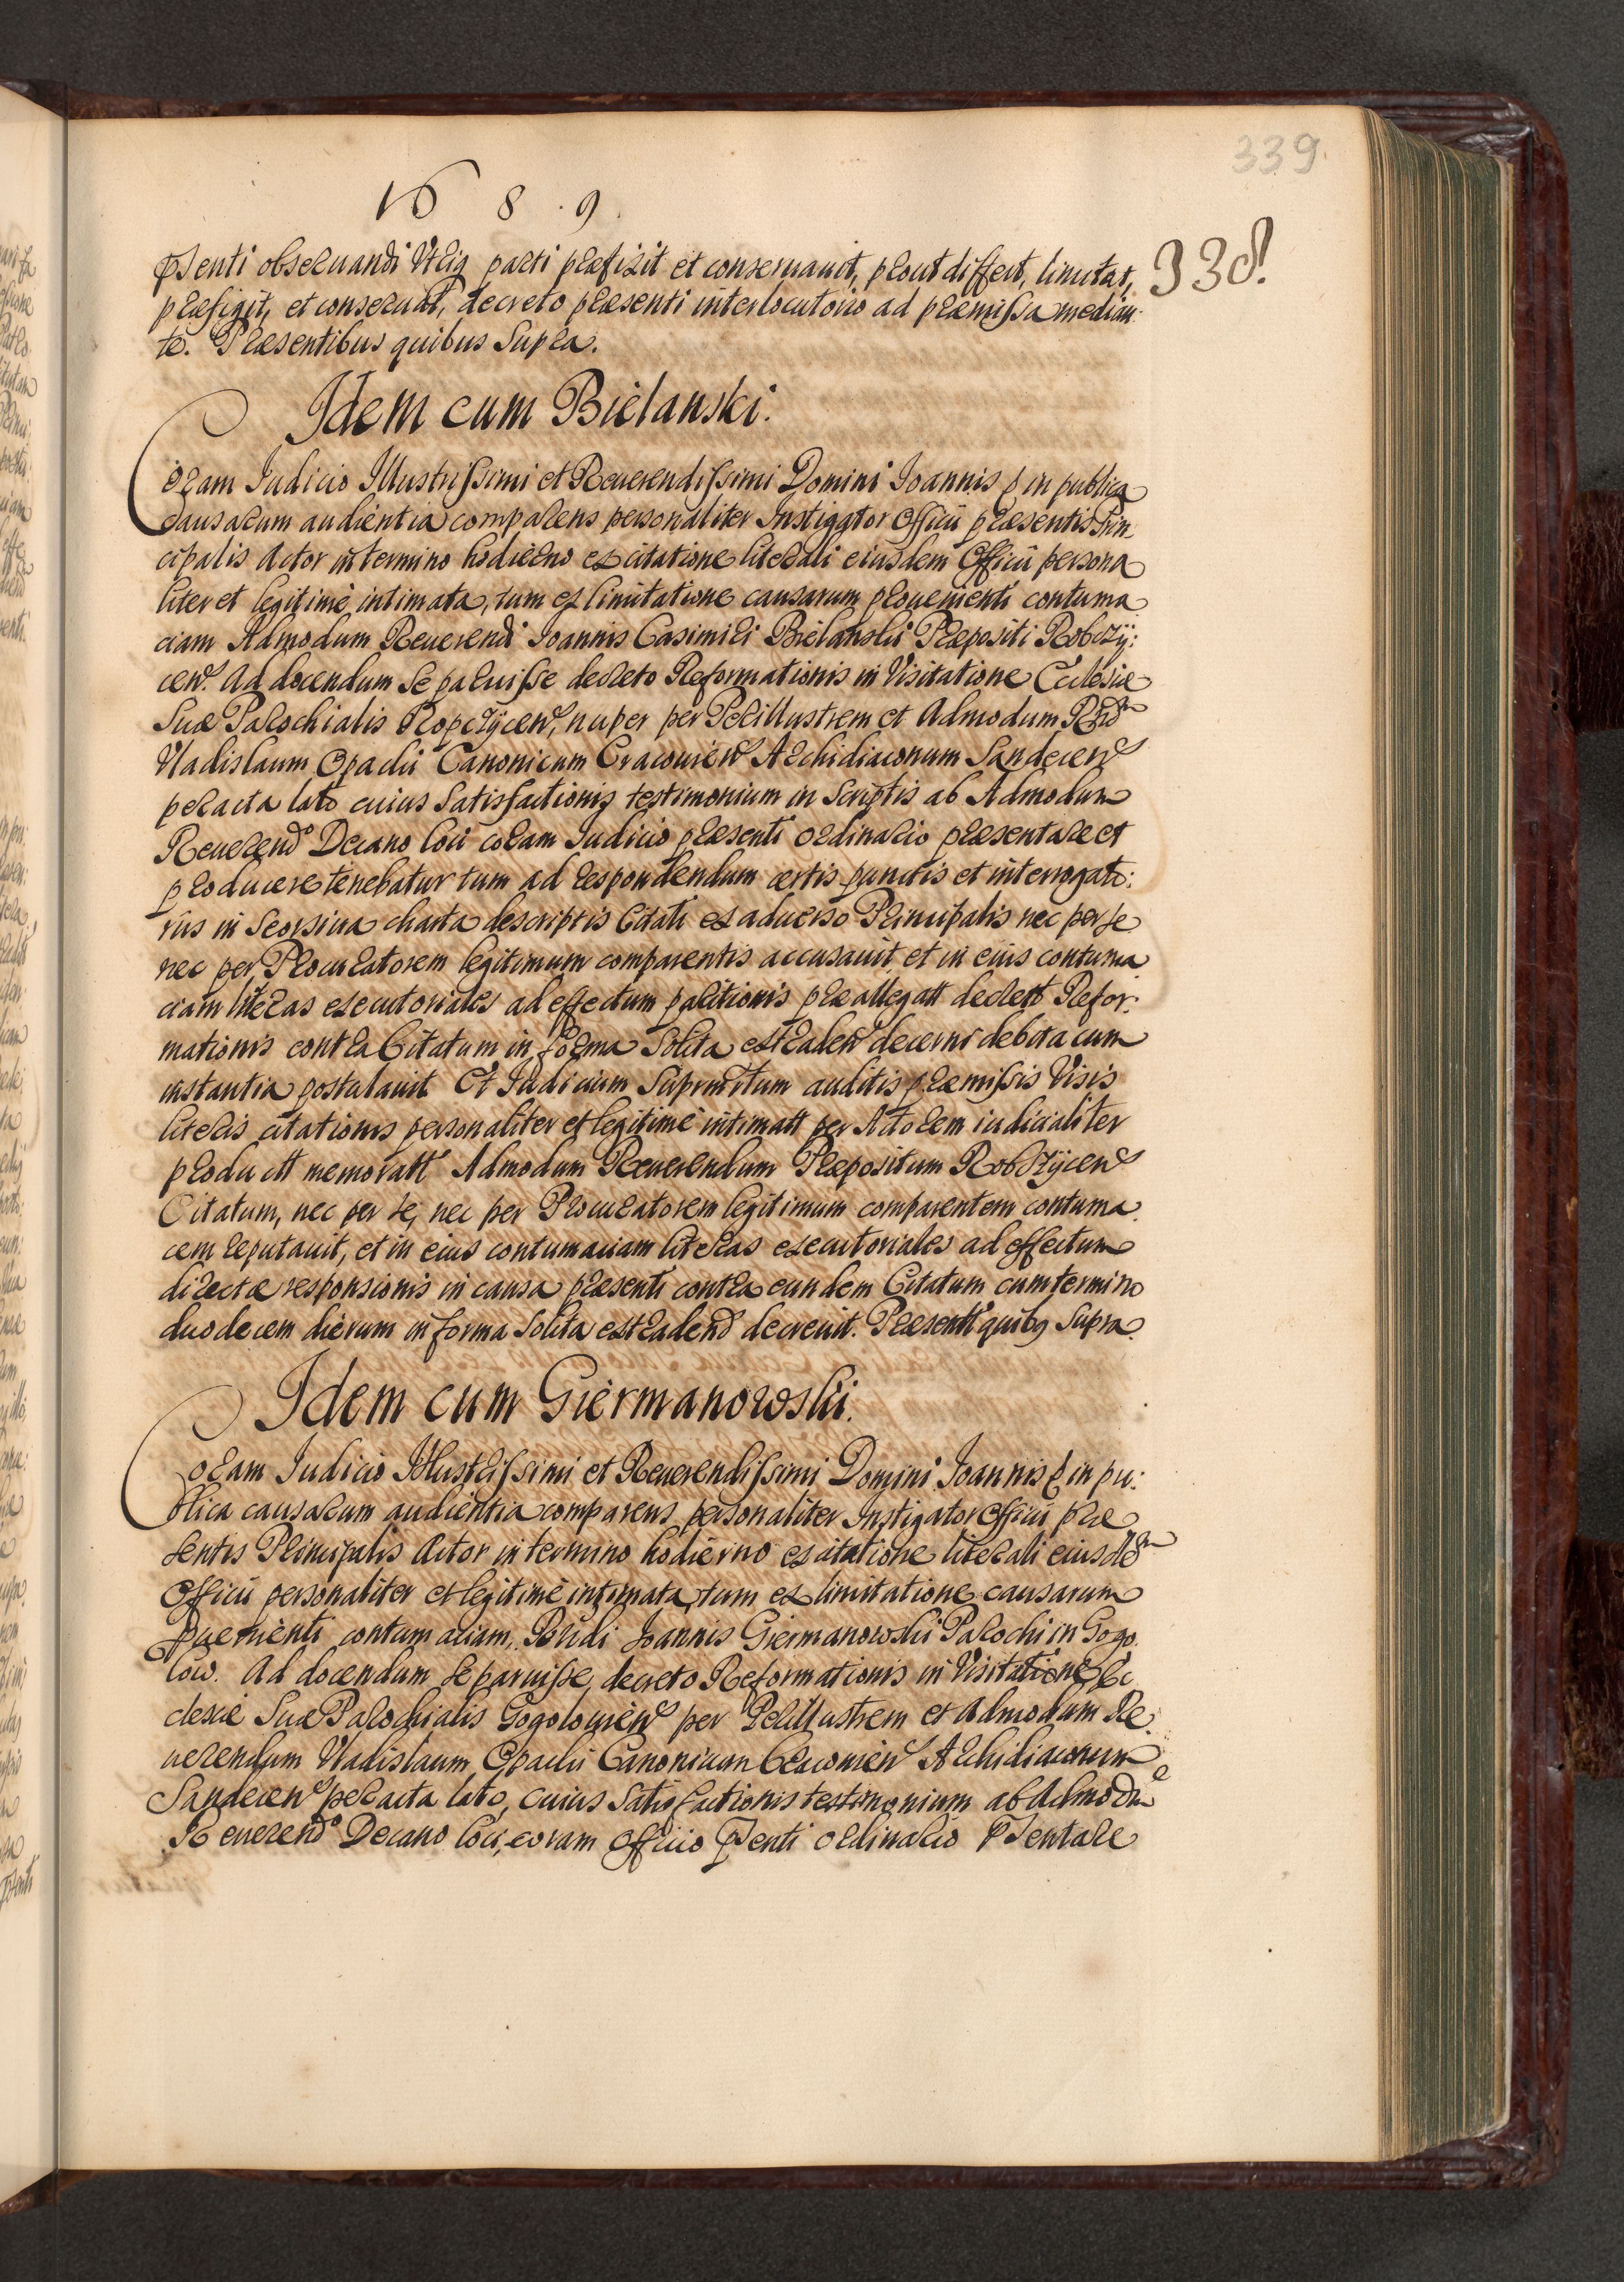 339.
1689.
338.
pṡenti obseruandi Vtriq parti praefixit et conseruauit, prout differt, limitat,
praefigit, et conseruat, decreto praesenti interlocutorio ad praemissa median-
te. Praesentibus quibus supra.
Idem cum Bielanski.
Coram Iudicio Illustrissimi et Reuerendissimi Domini Ioannis in publica
causarum audientia comparens personaliter Instigator Officii praesentis Prin-
cipalis Actor in termino hodierno ex citatione literali eiusdem Officii persona
liter et legitime intimata, tum ex limitatione causarum prouenienti contuma
ciam Admodum Reuerendi Ioannis Casimiri Bielanski Praepositi Robczy:
cen. Ad docendum se paruisse decreto Reformationis in Visitatione Ecclesiae
Suae Parochialis Ropczycen, nuper per Perillustrem et Admodum Rndm
Vladislaum Opacki Canonicum Cracouien Archidiaconum Sandecen
peracta lato cuius Satisfactionis testimonium in Scriptis ab Admodum
Reuerendo Decano loci coram Iudicio praesenti ordinario praesentare et
producere tenebatur tum ad respondendum certis punctis et interrogato:
riis in Seorsiua charta descriptis Citati ex aduerso Principalis nec per se
nec per Procuratorem legitimum comparentis accusauit et in eius contuma
ciam literas executoriales ad effectum paritionis praeallegatt decrett Refor:
mationis contra Citatum in forma Solita extraden decerni debita cum
instantia postulauit Et Iudicium Supratum auditis praemissis Visis
literis citationis personaliter et legitime intimatt per Actorem iudicialiter
productt memoratt Admodum Reuerendum Praepositum Robczycen
Citatum, nec per se, nec per Procuratorem legitimum comparentem contuma
cem reputauit, et in eius contumaciam literas executoriales ad effectum
directae responsionis in causa praesenti contra eundem Citatum cum termino
duodecem dierum in forma Solita extradend decreuit. Praesentt quibq Supra.
Idem cum Giermanowski.
Coram Iudicio Illustrissimi et Reuerendissimi Domini Ioannis in pu:
blica causarum audientia comparens personaliter Instigator Officii prae
sentis Principalis Actor in termino hodierno ex citatione literali eiusdem
Officii personaliter et legitime intimata, tum ex limitatione causarum
puenienti contumaciam, Rndi Ioannis Giermanowski Parochi in Gogo
low. Ad docendum se paruisse, decreto Reformationis in Visitatione Ec
clesiae Suae Parochialis Gogolouien per Perillustrem et Admodum Re
uerendum Vladislaum Opacki Canonicum Cracouien Archidiaconum
Sandecen peracta lato, cuius Satisfactionis testimonium ab Admodu
Reuerendo Decano loci, coram Officio pṡenti ordinario pṡentare